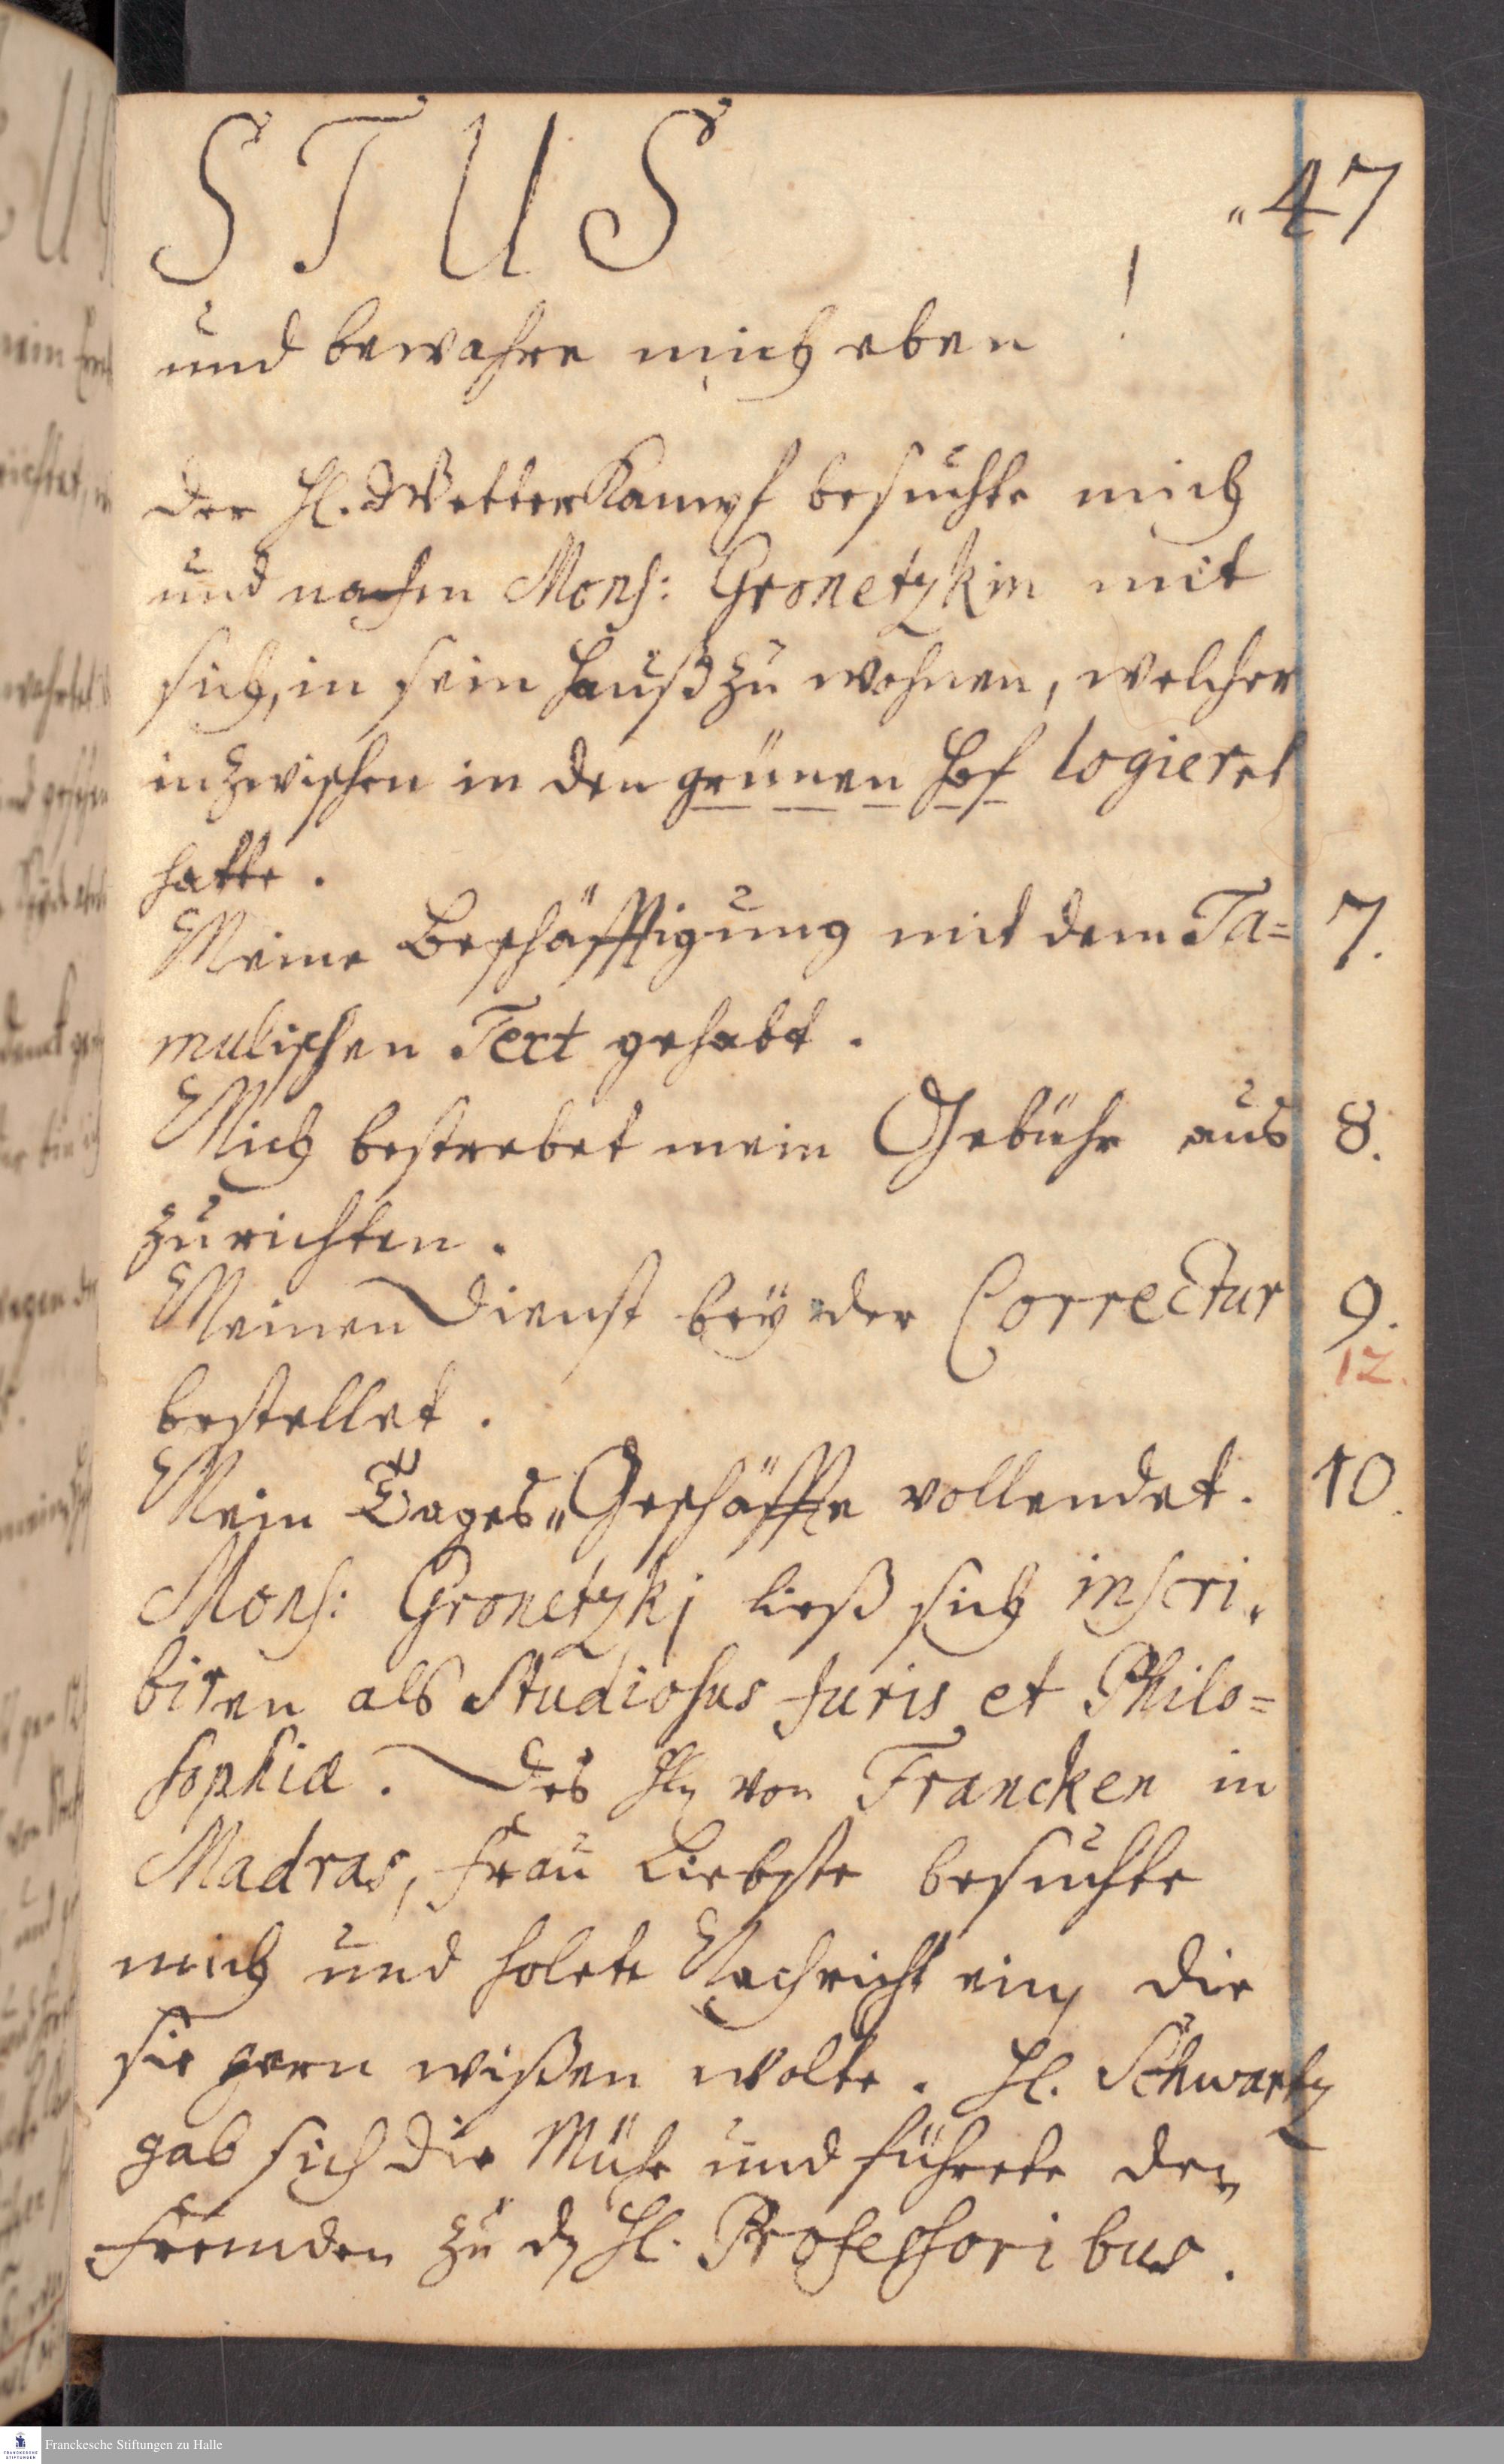 STUS
"47
und bewahre mich eben !
der H. Wetterkampf besuchte mich
und nahm Mons: Gronetzkin mit
sich, in sein Hauß zu wohnen, welcher
inzwischen in den grünen Hof logieret
hatte.
Meine Beschäfftigung mit dem Ta= 7.
mulischen Text gehabt.
Mich bestrebet mein Gebühr aus 8.
zurichten.
Meinen Dienst bey der Correctur 9.
12.
bestellet.
Mein Tages„Geschäffte vollendet. 10.
Mons: Gronetzkj ließ sich inscri„
biren als Studiosus Juris et Philo=
sophiæ. Des Hn von Francken in
Madras, Frau Liebste besuchte
mich und holete Nachricht ein, die
sie gern wißen wolte. H. Schwartz
gab sich die Mühe und führete den
Fremden zu d H. Professoribus.
Franckesche Stiftungen zu Halle